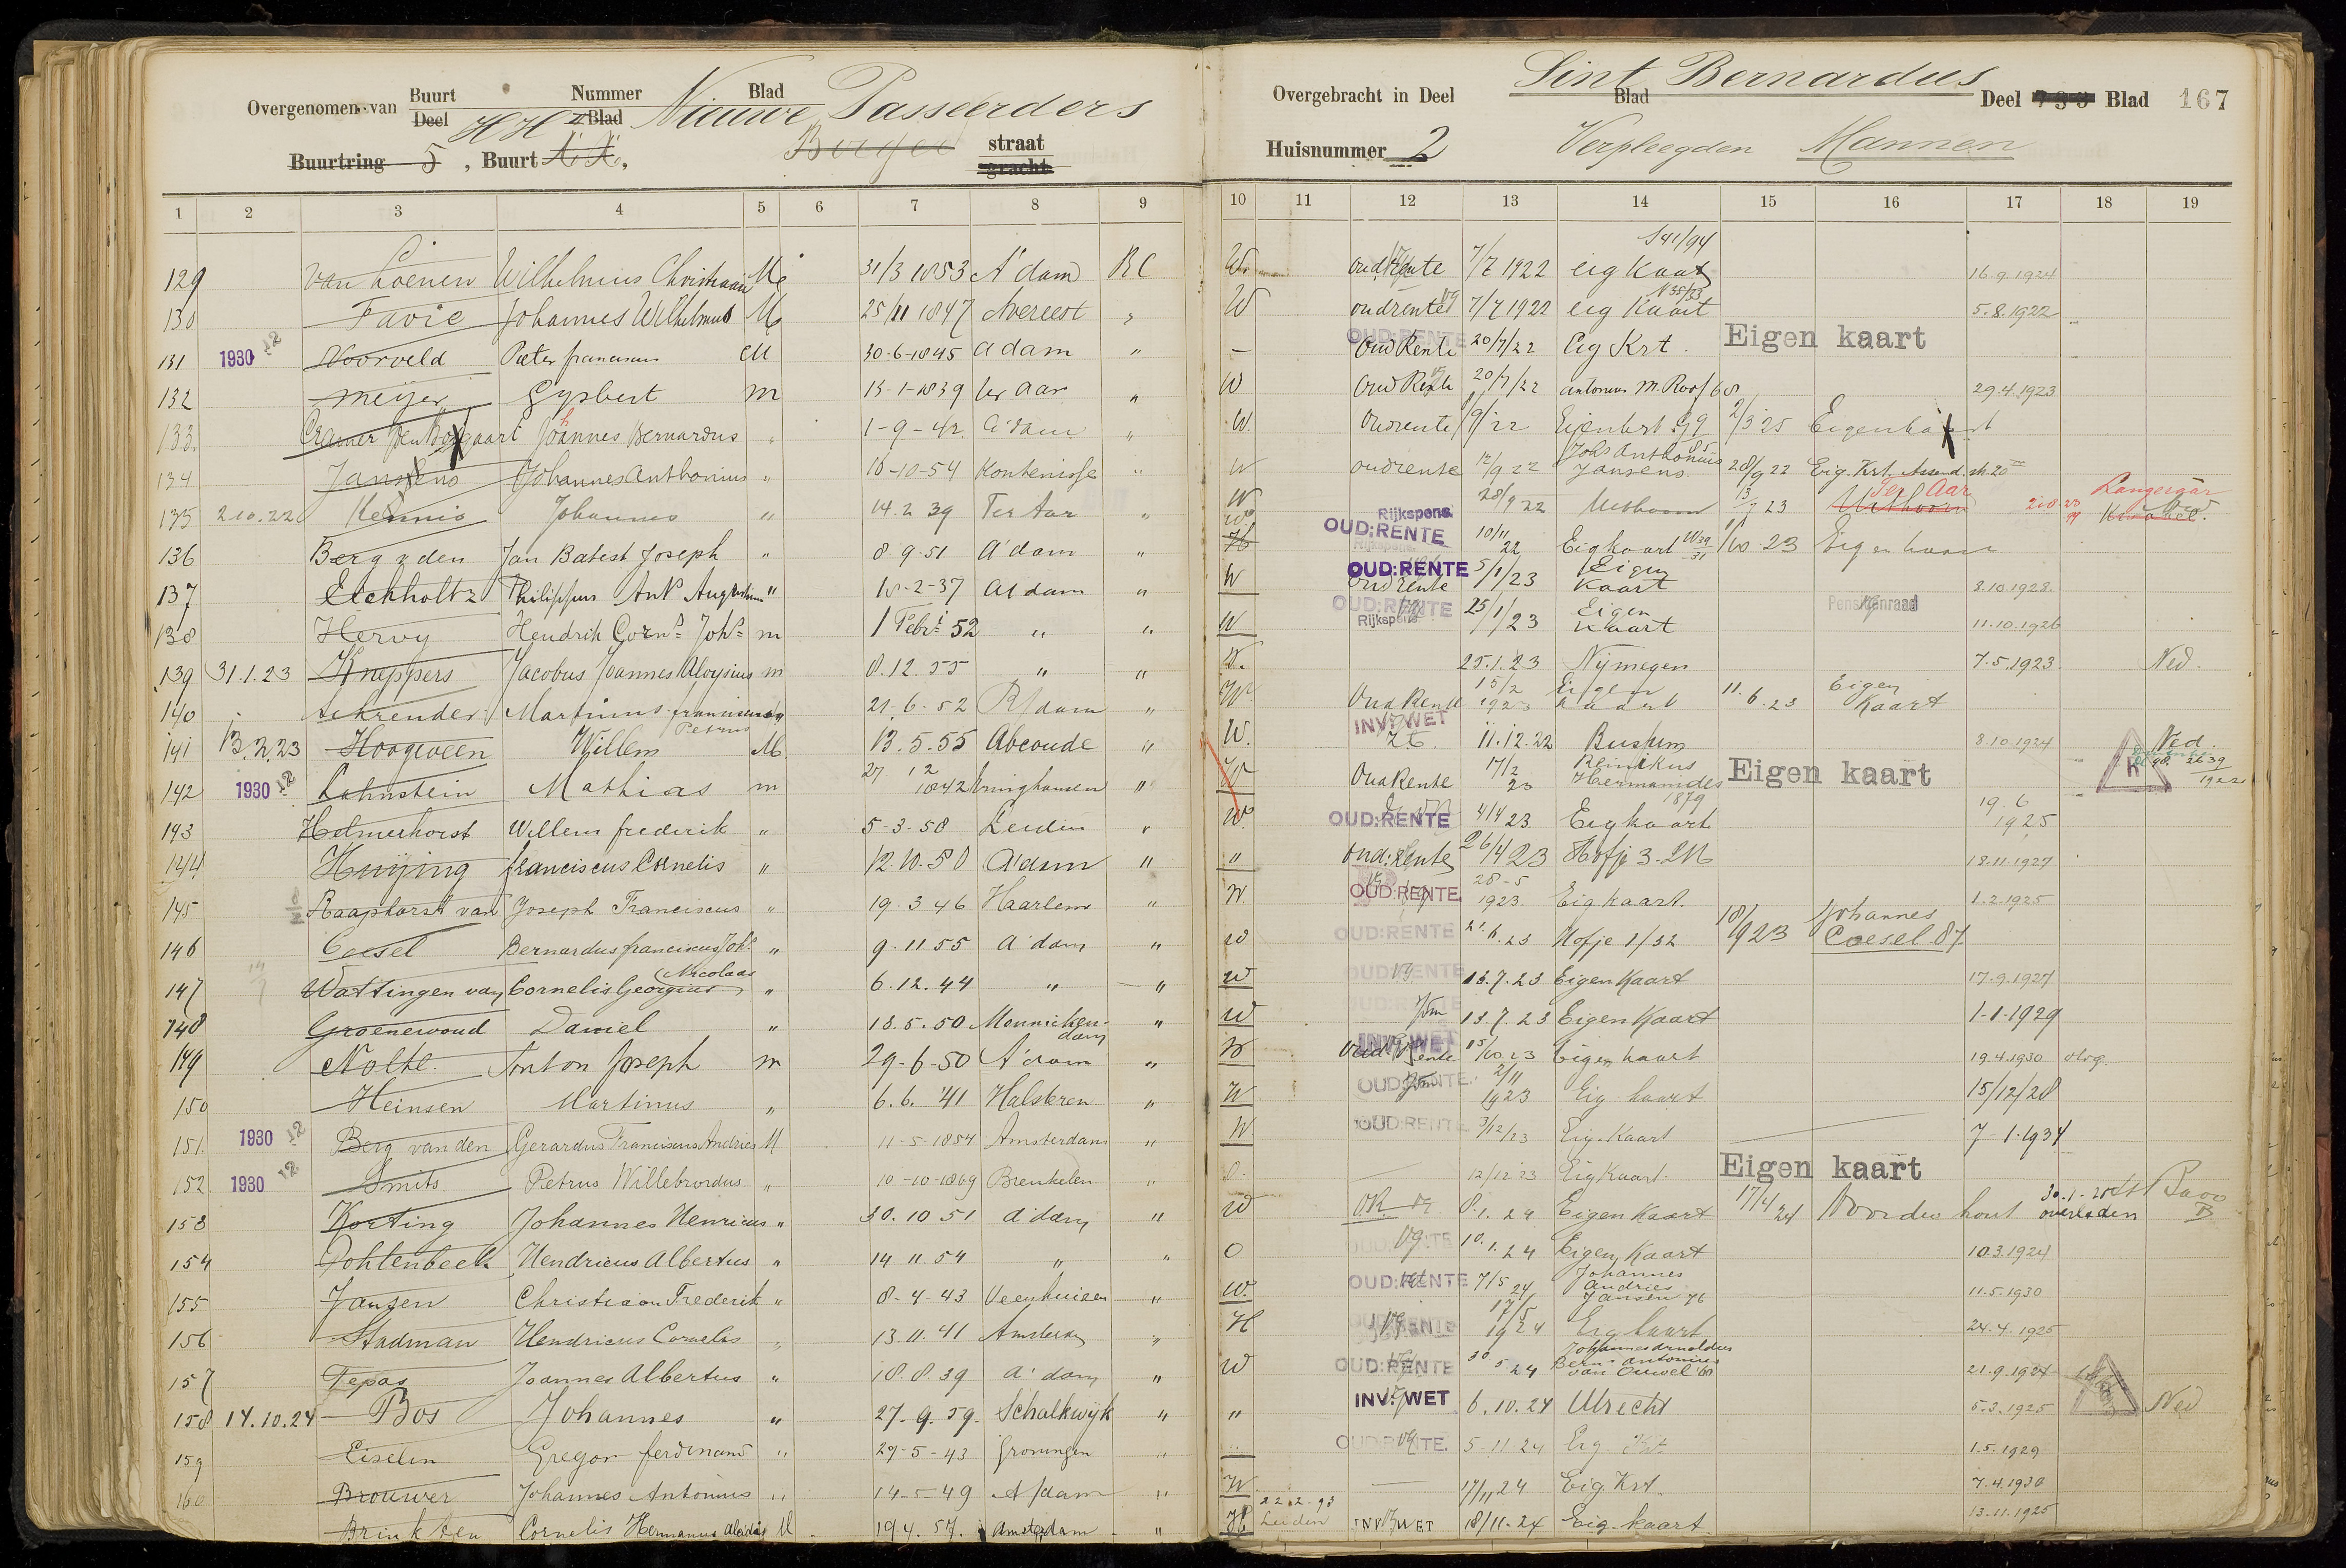 Overgenomen van Buurt Deel Nummer Blad Blad Nieuwe Passeerders
Buurtring 5, Buurt straat gracht
HH
Sint Bernardus
Overgebracht in Deel Blad Deel Blad 167
Huisnummer 2 Verpleegden Mannen
1 2 3 4 5 6 7 8 9 10 11 12 13 14 15 16 17 18 19
129 van Loenen Wilhelmus Christiaan M 31/3 1853 A'dam RC W oud Rente 7/7 1922 eig Kaart 16.9.1924
130 Favie Johannes Wilhelmus M 25/11 1847 Avereest " W oudrente 7/7 1922 eig Kaart 5.8.1922
131 1930 12 Noorveld Pieter franciscus M 30-6-1845 Adam " – OUD:RENTE Oud Rente 20/7/22 Eig Krt. Eigen kaart
132 Meijer Gysbert m 13-1-1839 ter Aar " W Oud Rente 20/7/22 antonius M. Roof 68 29.4.1923
133 Cramer Johannes Bernardus " 1-9-42 A'dam " W. Oudrente 22 Eigenkrt 2/3 25 Eigenkaart
134 Janssens Johannes Anthonius " 10-10-54 Kontenisse " W oudrente 12/9 22 Johs Anthonius Jansens 85 28/9 22 Eig. Krt.
135 2.10.22 Kennis Johannes " 14.2 39 Ter Aar " W 28/9 22 Uithoorn 13/7 23 Ter Aar Uithoorn Langeraar
136 Berg v den Jan Batest Joseph " 8.9.51 A'dam " Rijkspens OUD:RENTE 10/11 22 Eig kaart 1/10.23 Eigen kaart
137 Eickholtz Philippus Ant Augustinus " 10-2-37 A'dam " W OUD:RENTE Oud rente 5/1/23 Eigen Kaart 8.10.1928
138 Hervy Hendrik Corns Johs m 1 Febri 52 " " W OUD:RENTE Rijkspens 25/1/23 Eigen Kaart Pensioenraad 11.10.1926
139 31.1.23 Knappers Jacobus Joannes Aloysius m 8.12.55 " " W. 25.1.23 Nijmegen 7.5.1923 Ned.
140 Schreuder Martinus franciscus " 21.6-52 R/dam " W Oud Rente 15/2 1923 Eigen kaart 11.6.23 Eigen Kaart
141 13.2.23 Hoogveen Willem Petrus M 13.5.55 Abcoude " W. INV:WET 11.12.22 Bussum 8.10.1924 Ned.
142 1930 12 Lohnstein Mathias m 27 12 1842 " W Oud Rente 17/2 23 Reinikus Hermanides 1879 Eigen kaart
143 Helmerhorst Willem frederik " 5-3-58 Leiden " W. OUD:RENTE 4/4 23 Eig kaart 19.6 1925
144 Huijing franciscus Cornelis " 12.10.50 A'dam " " Oud:Rente 26/4 23 Hofje 3. 18.11.1927
145 Raaphorst van Joseph Franciscus " 19.3 46 Haarlem " W. OUD:RENTE. 28-5 1923. Eig kaart. 1.2.1925
146 Coesel Bernardus franciscus Johs " 9.11.55 A'dam " W OUD:RENTE 21.6.23 Hofje 1/32 18/9 23 Johannes Coesel 87.
147 Wattingen van Cornelis Georgius (Nicolaas " 6.12.44 " " W OUD:RENTE 13.7.23 Eigen Kaart 17.9.1927
148 Groenewoud Daniel " 13.5.50 Monnickendam " W OUD:RENTE 13.7.23 Eigen Kaart 1-1-1929
149 Nolte Anton Joseph m 29-6-50 A'dam " W INV:WET Oud Rente 15/10.23 Eigen kaart 19.4.1930
150 Heinsen Martinus " 6.6.'41 Halsteren " W OUD:RENTE. 2/11 1923 Eig kaart 15/12/28
151. 1930 12 Berg van den Gerardus Franciscus Andries M 11-5-1854 Amsterdam " W OUD:RENTE. 3/12/23 Eig. Kaart 7-1-1934
152 1930 12 Smits Petrus Willebrordus " 10-10-1869 Breukelen " O. 12/12 23 Eig Kaart. Eigen kaart
153 Korting Johannes Henricus " 30.10 51 A'dam " W O.R. 8.1.24 Eigen Kaart 17/4 24 Noordwijkerhout overleden
154 Dohlenbeek Hendricus Albertus " 14 11.54 " " O 10.1.24 Eigen Kaart 10.3.1924
155 Jansen Christiaan Frederik " 8-4-43 Veenhuizen " W. OUD:RENTE 7/5 24 Johannes Andries Jansen 76 11.5.1930
156 Stadman Hendricus Cornelis " 13.11.41 Amsterdam " H 17/5 1924 Eig kaart 24.4.1925
157 Tepas Joannes Albertus " 18.8.39 A'dam " W OUD:RENTE 30.5 24 Johannes Arnoldus Bern. Antonius van Ouwel 21.9.1924
158 14.10.24 Bos Johannes " 27.9.59. Schalkwijk " " INV:WET 6.10.24 Utrecht 5.3.1925 Ned
159 Eiselin Gregor ferdinand " 29-5-43 Groningen " OUD:RENTE. 5-11 24 Eig Krt 1.5.1929
160 Brouwer Johannes Antonius " 14-5-49 A/dam " W 17/11 24 Eig. Krt. 7.4.1930
Brinkten Cornelis Hermanus M 19 4.57. Amsterdam " H 22.2-93 Leiden INV:WET 18/11-24 Eig. kaart 13.11.1925